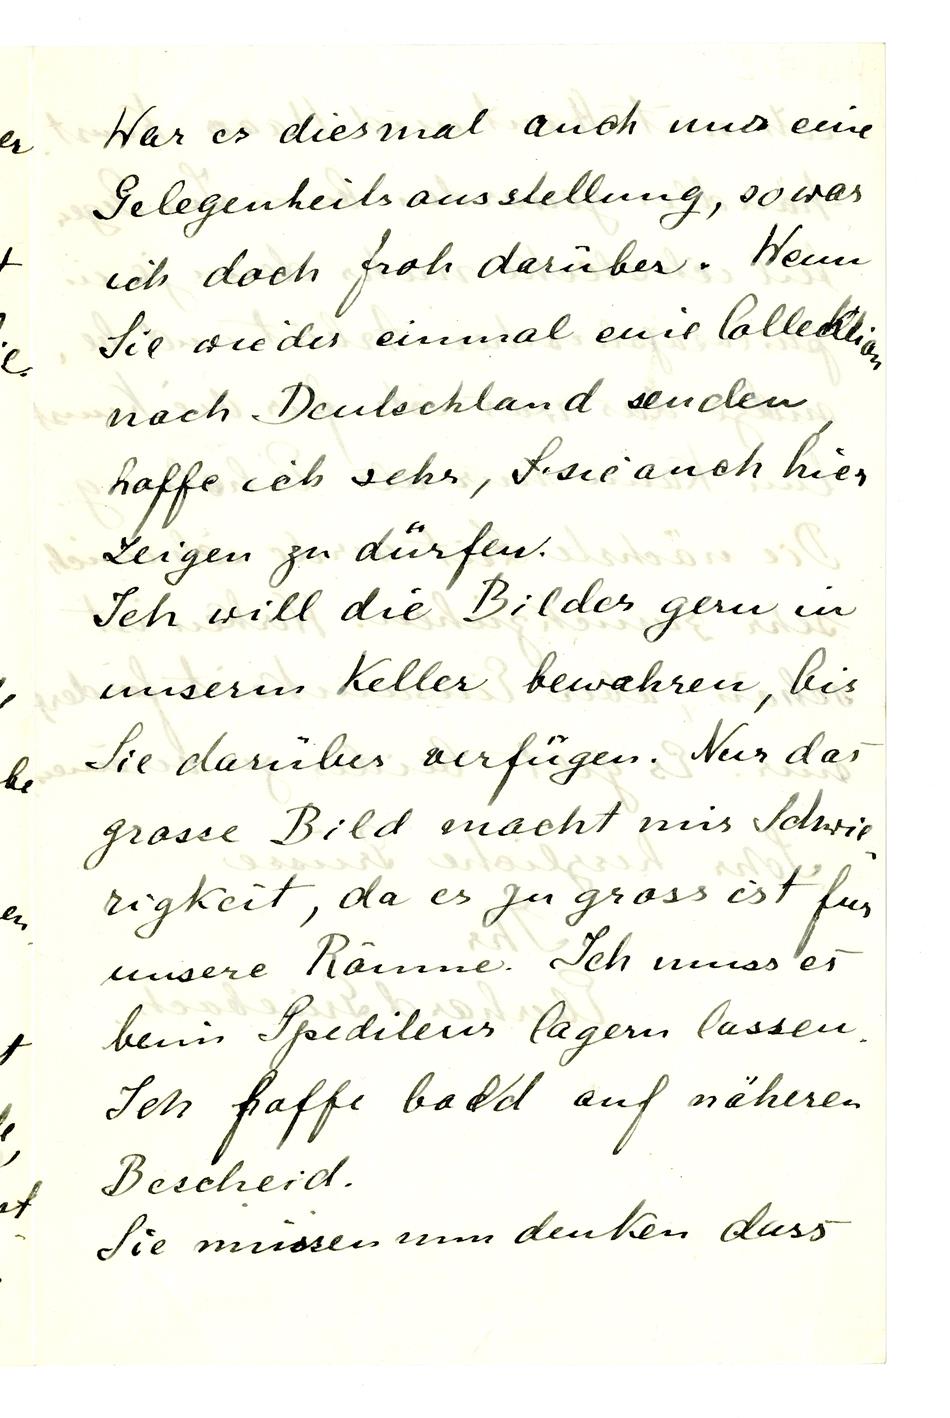 War es diesmal auch nur eine
Gelegenheitsausstellung, so war
ich doch froh darüber. Wenn
Sie wieder einmal eine Collektion
nach Deutschland senden,
hoffe ich sehr, sie auch hier
zeigen zu dürfen.
Ich will die Bilder gern in
unserm Keller bewahren, bis
Sie darüber verfügen. Nur das
grosse Bild macht mir Schwie-
rigkeit, da es zu gross ist für
unsere Räume. Ich muss es
beim Spediteur lagern lassen.
Ich hoffe bald auf näheren
Bescheid.
Sie müssen nun denken dass